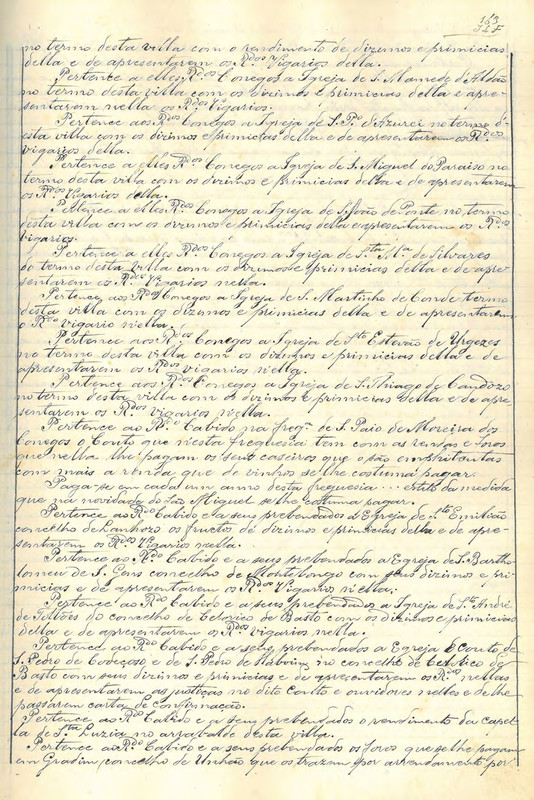 163
no termo desta villa com o rendimento de dizimos e primicias
della e de apresentarem os R.dos Vigarios della.
Pertence a elles R.dos Conegos a Igreja de S. Mamede d'Aldão
no termo desta villa com os dizimos e primicias della e apre-
sentarem nella os R.dos Vigarios.
Pertence aos R.dos Conegos a Igreja de S. P.o d'Azurei no termo d'
esta villa com os dizimos e primicias della e de apresentarem os R.dos
vigarios della.
Pertence a elles R.dos Conegos a Igreja de S. Miguel do Paraiso no
termo desta villa com os dizimos e primicias della e de apresentarem
os R.dos Vigarios della.
Pertence a elles R.dos Conegos a Igreja de S. João de Ponte no termo
desta villa com os dizimos e primicias della e apresentarem os R.dos
vigarios.
Pertence a elles R.dos Conegos a Igreja de S.ta M.a de Silvares
do termo desta villa com os dizimos e primicias della e de apre-
sentarem os R.dos Vigarios nella.
Pertence aos R.dos Conegos a Igreja de S. Martinho de Conde termo
desta villa com os dizimos e primicias della e de apresentarem
o R.do Vigario n'ella.
Pertence aos R.dos Conegos a Igreja de S.to Estevão de Urgezes
no termo desta villa com os dizimos e primicias della e de
apresentarem os R.dos vigarios n'ella.
Pertence aos R.dos Conegos a Igreja de S. Thiago de Candozo
no termo desta villa com os dizimos e primicias della e de apre-
sentarem os R.dos vigarios n'ella.
Pertence ao R.do Cabido na freg.a de S. Paio de Moreira dos
Conegos o Couto que n'esta freguesia tem com as rendas e foros
que nella lhe pagam os seus caseiros que o são
com mais a renda que de vinhos se lhe costuma pagar.
Paga-se em cada um anno desta freguesia ... esteio da medida
que na novidade do São Miguel se lhe costuma pagar.
Pertence ao R.do Cabido e a seus prebendados a Egreja de S.to Emilião
concelho de Lanhozo os fructos de dizimos e primicias della e de apre-
sentarem os R.dos Vigarios nella.
Pertence ao R.do Cabido e a seus prebendados a Egreja de S. Bartho-
lomeu de S. Gens concelho de Montelongo com seus dizimos e pri-
micias e de apresentarem os R.dos Vigarios n'ella.
Pertence ao R.do Cabido e a seus prebendados a Igreja de S.to André
de Tellões do concelho de Celorico de Basto com os dizimos e primicias
della e de apresentarem os R.dos vigarios nella.
Pertence ao R.do Cabido e a seus prebendados a Egreja e Couto de
S. Pedro de Codeçoso e de S. Pedro de no concelho de Celorico de
Basto com seus dizimos e primicias e de apresentarem os R.dos nellas
e de apresentarem as justiças no dito Couto e ouvidores nelles e de lhe
passarem carta de Confirmação.
Pertence ao R.do Cabido e a seus prebendados o rendimento da capel-
la de S.ta Luzia no arrabalde desta villa.
Pertence ao R.do Cabido e a seus prebendados os foros que se lhe pagam
em Gradim, concelho de Unhão que os trazem por arrendamento por